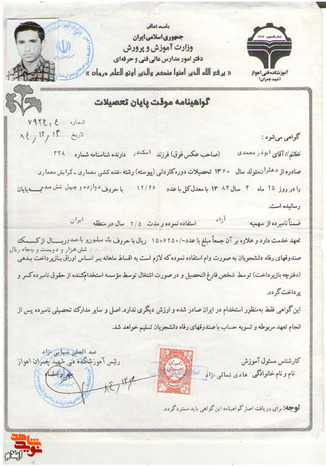 باسمه تعالی
جمهوری اسلامی ایران
وزارت آموزش و پرورش
دفتر امور مدارس عالی فنی و حرفه‌ای
« یرفع الله الذین امنوا منکم والذین اوتوا العلم درجات »
آموزشکده فنی اهواز
(شهید چمران)
گواهینامه موقت پایان تحصیلات
۷۹۲۴۰۴
۸۴,۱۲,۱۴
گواهی می‌شود :
خانم / آقای ابوذر محمدی (صاحب عکس فوق) فرزند اسکندر دارنده شناسنامه شماره ۳۲۸
صادره از دهلران متولد سال ۱۳۶۰ تحصیلات دوره کاردانی (پیوسته) رشته نقشه کشی معماری - گرایش معماری
را در روز ۲۵ ماه ۴ سال ۱۳۸۴ با معدل کل با عدد ۱۲/۴۶ با حروف دوازده و چهل شش صدم به پایان
رسانیده است.
ضمناً نامبرده از سهمیه آزاد استفاده نموده و مدت ۲/۵ سال در منطقه ایران
تعهد خدمت دارد و علاوه بر آن جمعاً مبلغ با عدد ۱۵۰۶۲۵۰/ ریال با حروف یک میلیون و پانصد و
شش هزار و دویست و پنجاه ریال
از صندوقهای رفاه دانشجویان به صورت وام استفاده نموده که لازم است به اقساط ماهانه بر اساس اوراق بازپرداخت بدهی
(دفترچه بازپرداخت) توسط شخص فارغ التحصیل و در صورت اشتغال توسط مؤسسه استخدام‌کننده از حقوق نامبرده کسر و
پرداخت گردد.
این گواهی فقط به‌منظور استخدام در ایران صادر شده و ارزش دیگری ندارد. اصل و سایر مدارک تحصیلی نامبرده پس از
انجام تعهد مربوطه و تسویه حساب با صندوقهای رفاه دانشجویان تسلیم خواهد شد.
کارشناس مسئول آموزش
نام و نام خانوادگی هادی شمالی نژاد
رئیس آموزشکده فنی شهید چمران اهواز
مهر و امضاء
توجه: برای دریافت اصل گواهینامه این گواهی باید مسترد گردد.
نوید شاهد
ایلام